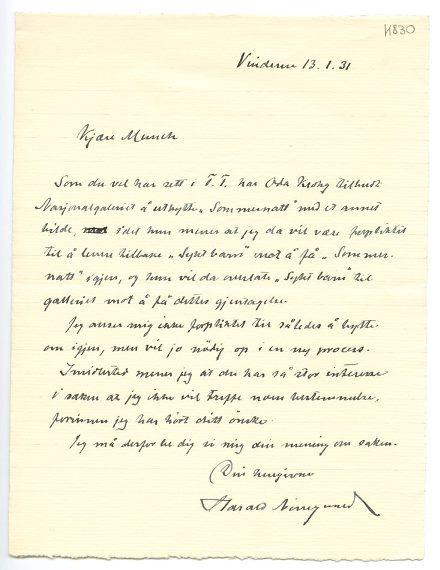 K830
Vinderen 13.1.31
Kjære Munch
Som du vel har sett i T.T. har Oda Krohg tilbudt
Nasjonalgalleriet å utbytte "Sommernatt" med et annet
bilde, idet hun mener at jeg da vil være forpliktet
til å levere tilbake "Sykt barn" mot å få "Sommer-
natt" igjen, og hun vil da overlate "Sykt barn" til
galleriet mot å få dettes gjentagelse.
Jeg anser mig ikke forpliktet til således å bytte
om igjen, men vil jo nödig op i en ny process.
Imidlertid mener jeg at du har så stor interesse
i saken at jeg ikke vil treffe noen bestemmelse,
forinnen jeg har hört ditt önske.
Jeg må derfor be dig si mig din mening om saken.
Din hengivne
Harald Nörregaard